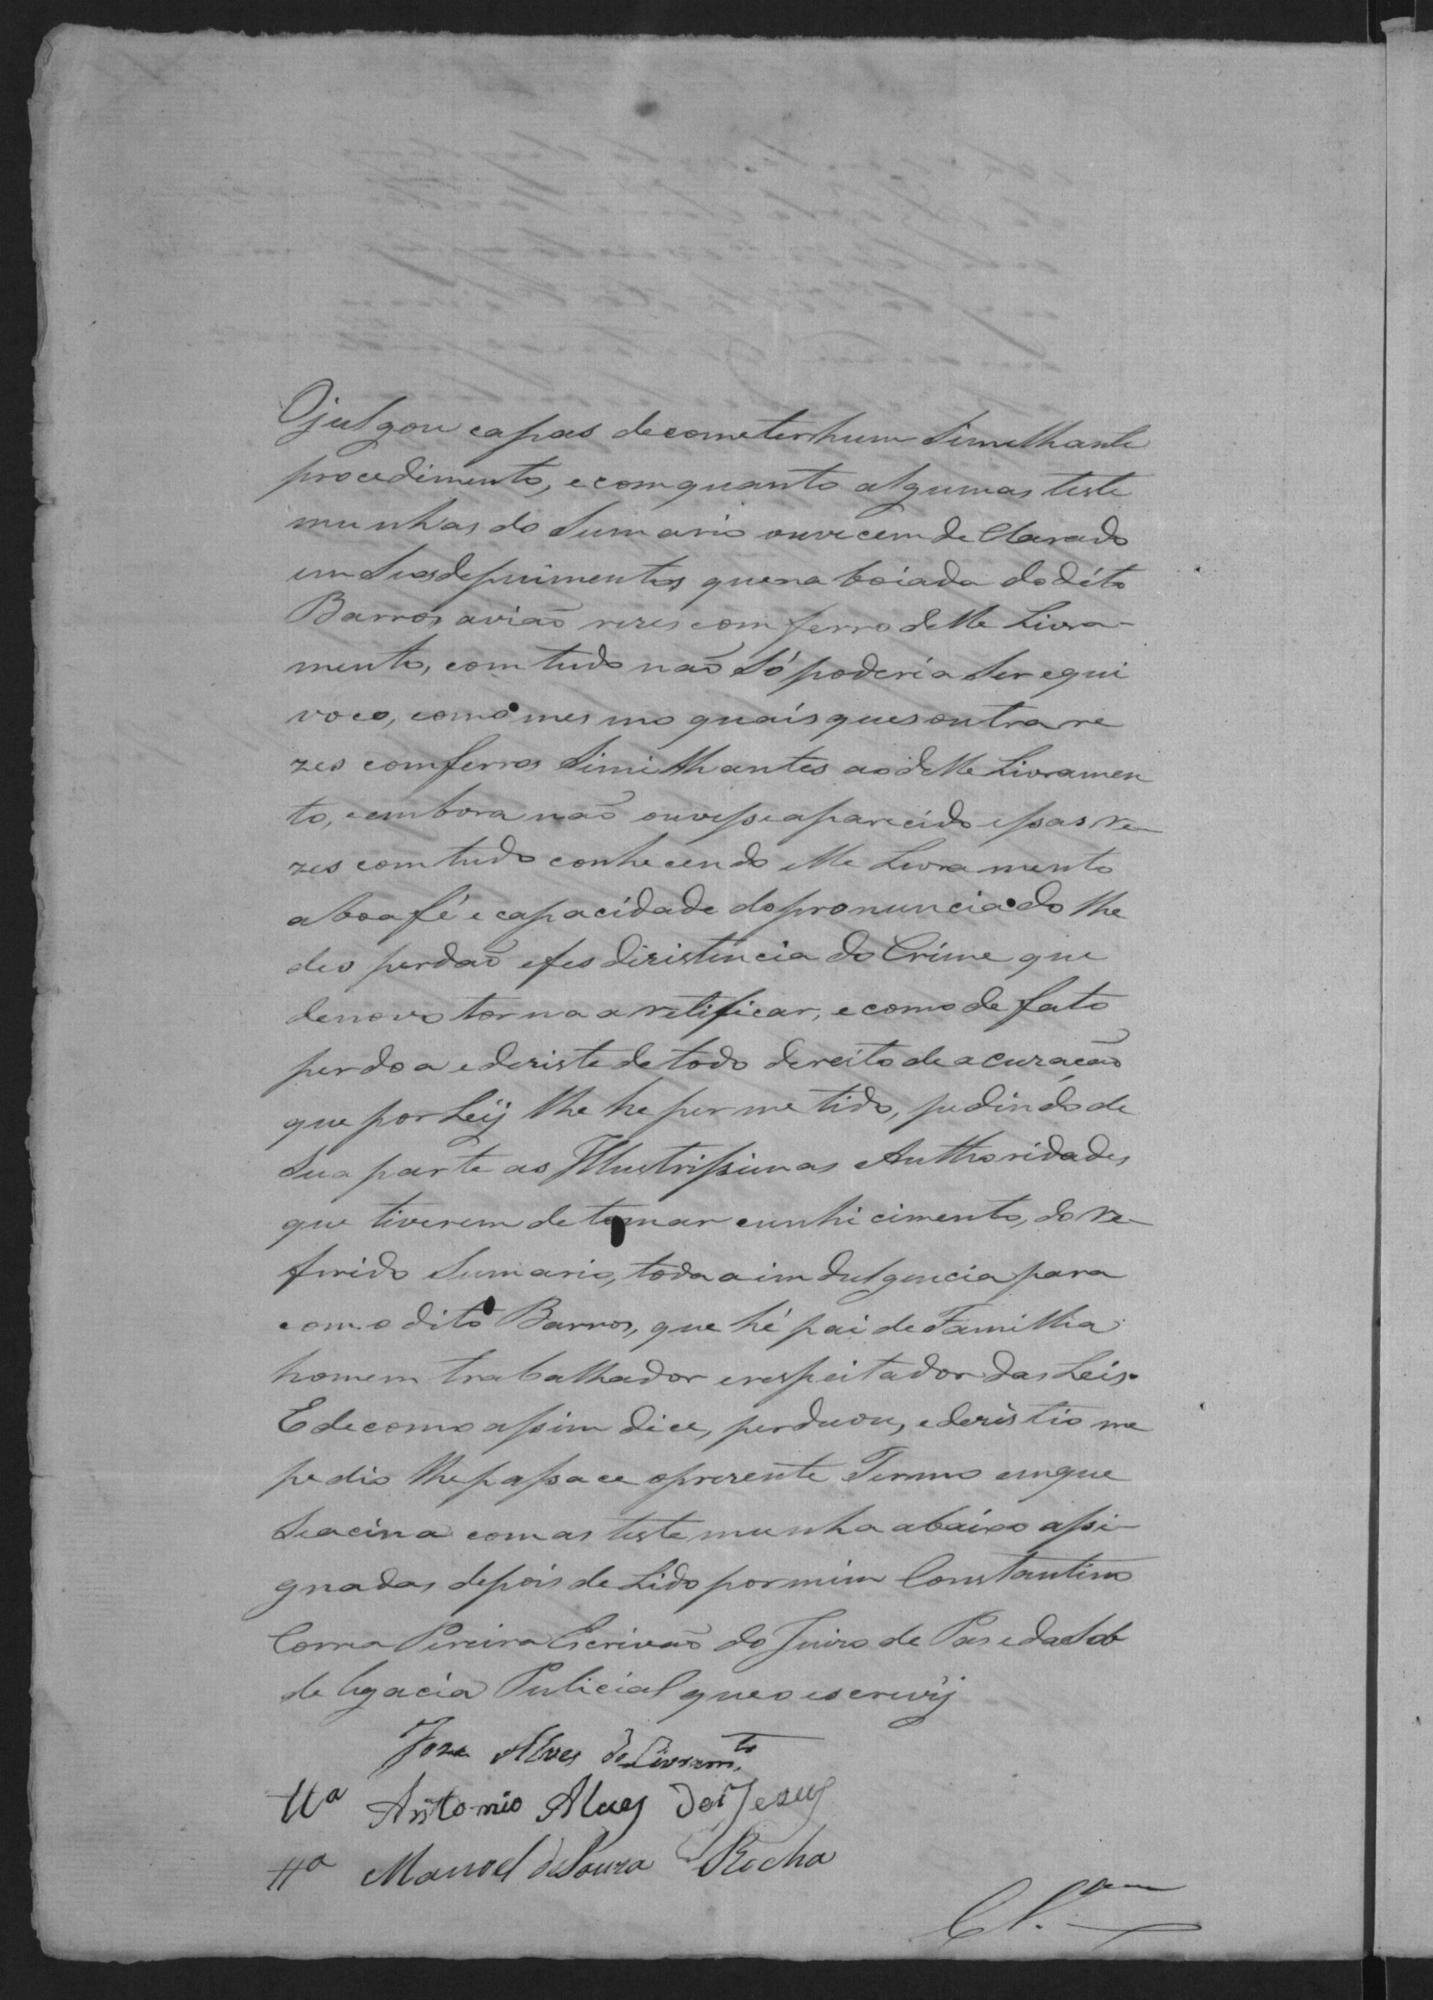 O julgou capas de cometer hum similhante
procedimento, e com quanto algumas teste
munhas do sumario ouvecem de clarado
em seos depuimentos que na boiada do dito
Barros avião rezes com ferro delle Livra-
mento, com tudo não só poderia ser equi
voco, como mesmo quais ques outra re
zes com ferros similhantes ao delle Livramen
to, e embora não ouvesse aparecido essas re-
zes com tudo conhecendo elle Livramento
a boa fé e capacidade do pronunciado lhe
deo perdão e fes dizistencia do Crime que
de novo torna a retificar, e como de fato
perdoa e deziste de todo dereito de acuzação
que por Leij lhe he permetido, pedindo de
sua parte as Illustrissimas Authoridades
que tiverem de tomar cunhicimento, do re-
ferido sumario, toda a indulgencia para
com o dito Barros, que hé pai de Familha
homem trabalhador e respeitador das Leis.
E de como assim dice, perduou, e dezistio me
pedio lhe passace o prezente Termo em que
se acina com as teste munha abaixo assi-
gnadas depois de Lido por mim Constantino
Correa Pereira Escrivão do Juizo de Pas e da Sob
delegacia Pulicial que o escrevij
Joze Alves do Livramto
Ttª Antonio Alves de Jezus
Ttª Manoel de Souza Rocha